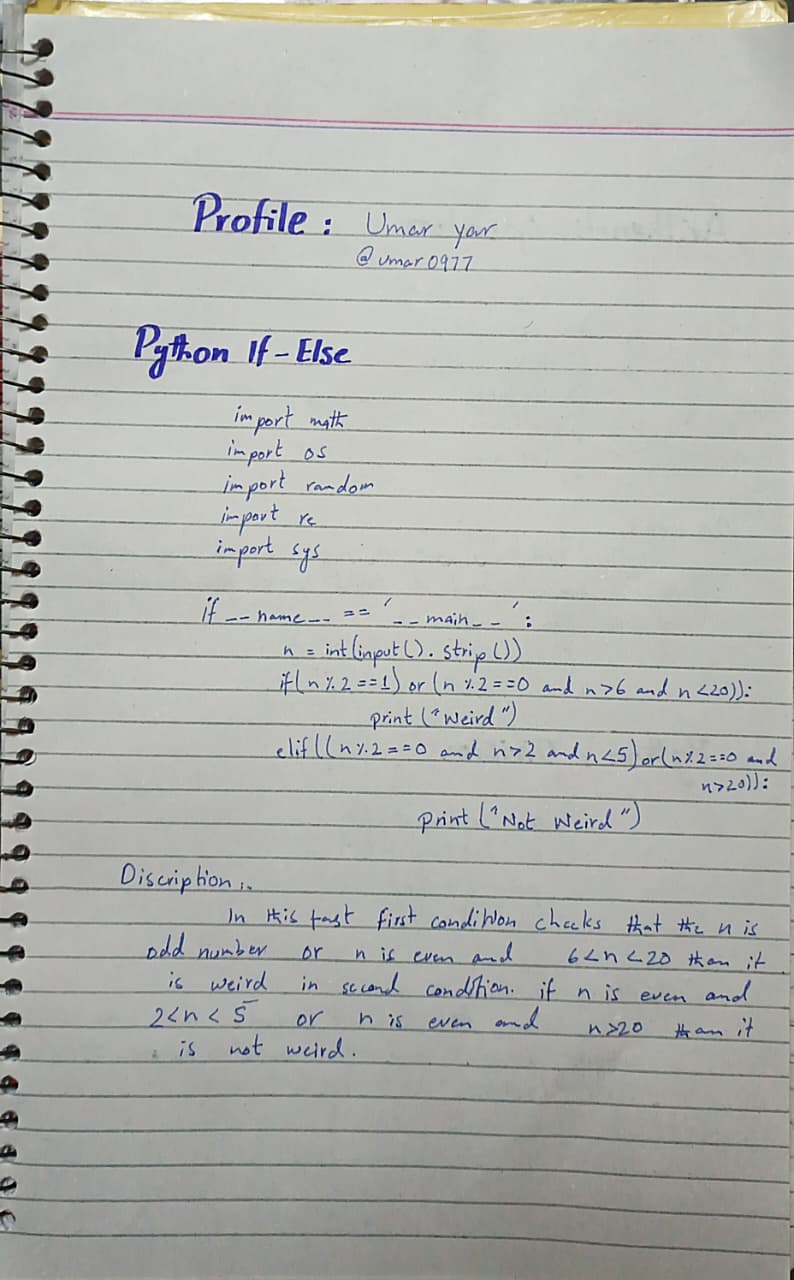 Profile : Umar yar
@umar0977
Python If-Else
import math
import os
import random
import re
import sys
if __name__ == '__main__':
n = int(input().strip())
if(n%2==1) or (n%2==0 and n>6 and n<20)):
print("Weird")
elif((n%2==0 and n>2 and n<5)or(n%2==0 and
n>20)):
print("Not Weird")
Discription:.
In this first condition checks that the n is
odd number or n is even and 6<n<20 than it
is weird in second condition. if n is even and
2<n<5 or n is even and n>20 than it
is not weird.